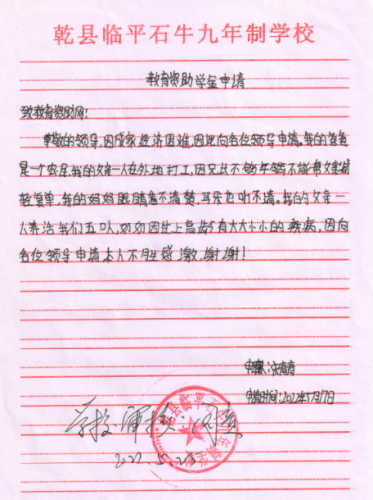 乾县临平石牛九年制学校
教育资助学金申请
致教育资助网:
尊敬的领导,因我家经济困难,因此向各位领导申请。我的爸爸
是一个农民,我的父亲一人在外地打工,因兄
我的妈妈眼睛看不清楚,耳朵也听不清。我的父亲一
人养活我们五口人,奶奶因岁上高龄有大大小小的疾病,因向
各位领导申请本人不胜感激,谢谢!
申请时间:2022年5月17日
学校
2022.5.
乾县临平石牛九年制学校